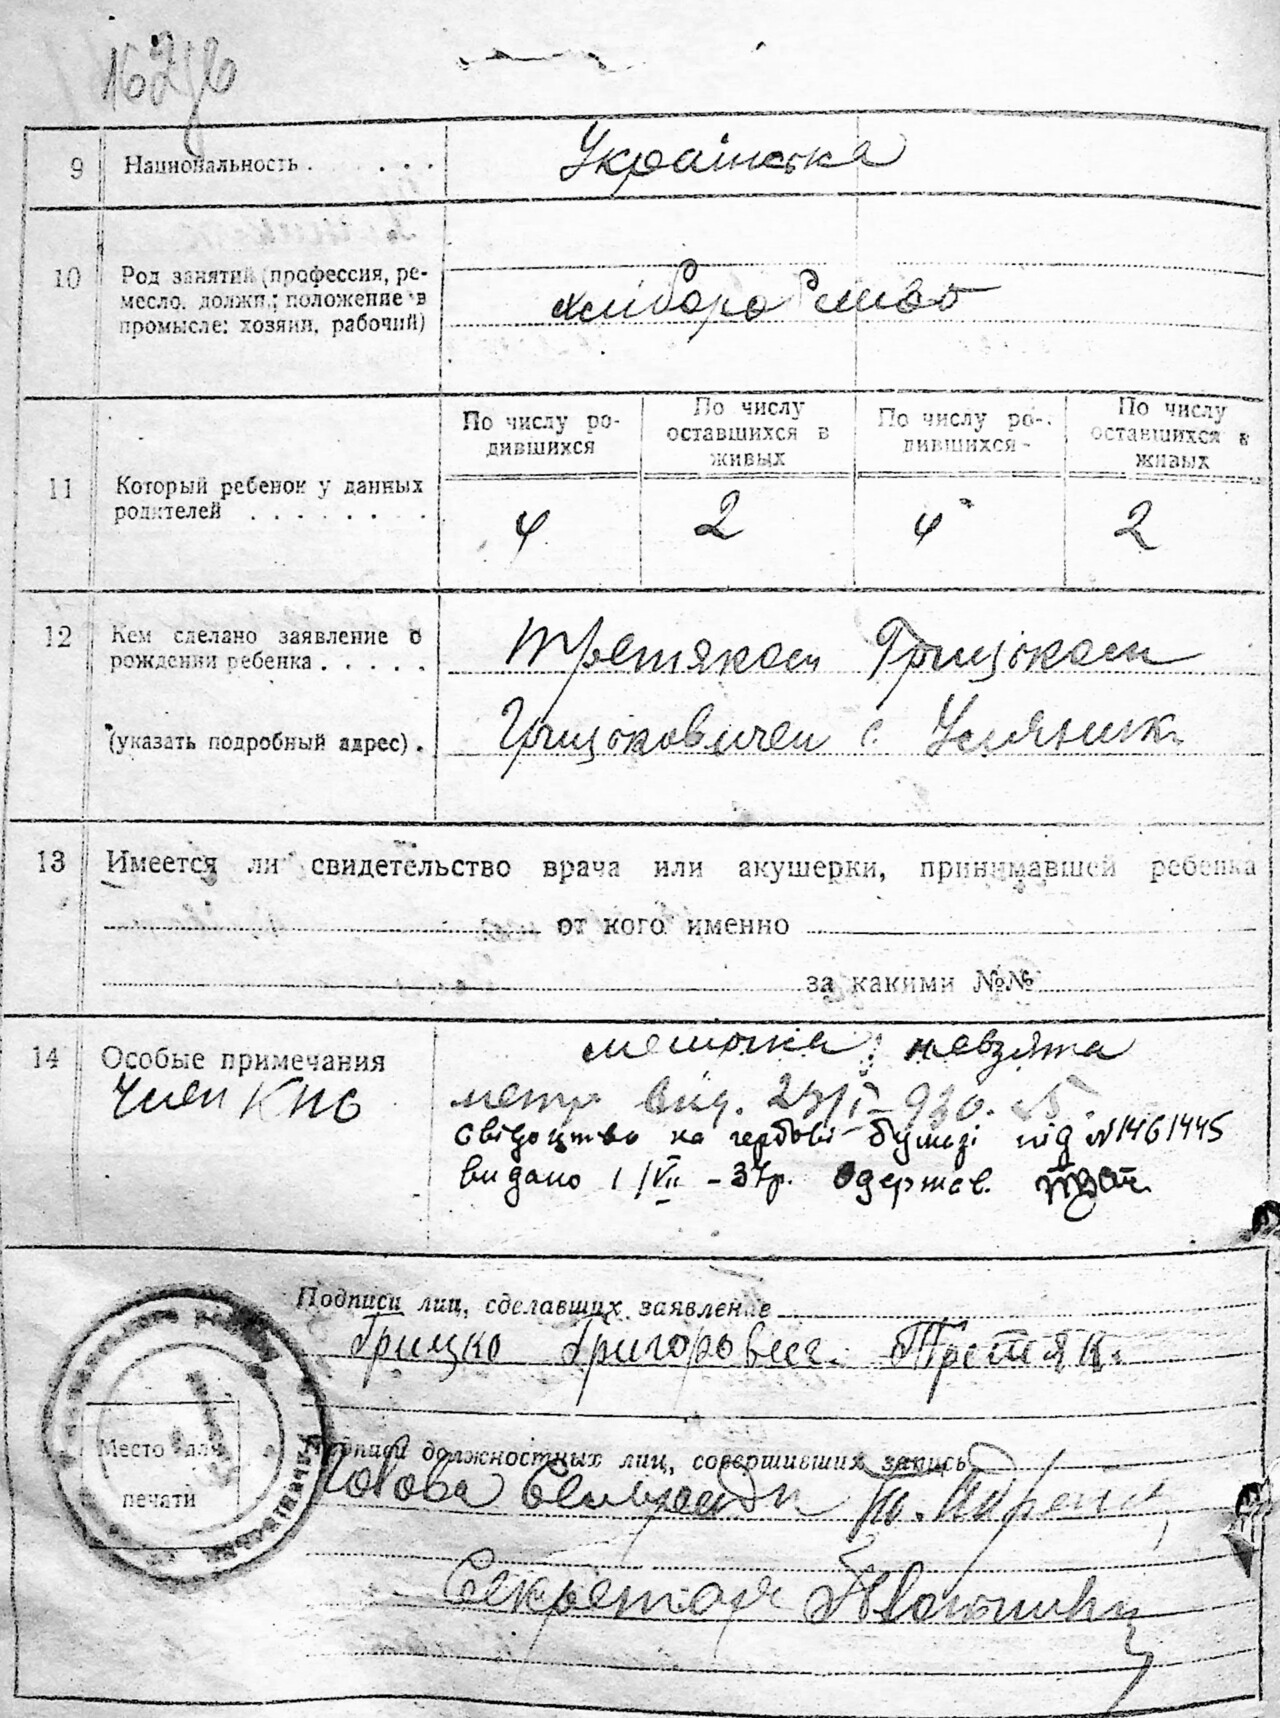 9 Национальность . . . . Українська
10 Род занятий (профессия, ре-
месло, должн.; положение в
промысле: хозяин, рабочий)
хліборобство
По числу ро-
дившихся
По числу
оставшихся в
живых
По числу ро-
дившихся
По числу
оставшихся в
живых
11 Который ребенок у данных
родителей . . . . . . . .
4 2 4 2
12 Кем сделано заявление о
рождении ребенка . . . . .
Третяком Грицком
(указать подробный адрес) .
Грицковичем с.
13 Имеется ли свидетельство врача или акушерки, принимавшей ребенка
от кого именно
за какими №№
14 Особые примечания
Член КНС
метрика невзята
метр вид.
свідоцтво на гербові бумазі під N 1461445
видано 1/VII - 37р. Одержав.
Подписи лиц, сделавших заявление
Грицко Григорьвич. Третяк.
Место для
печати
Подписи должностных лиц, совершивших запись
Голова Сельради
Секретарь